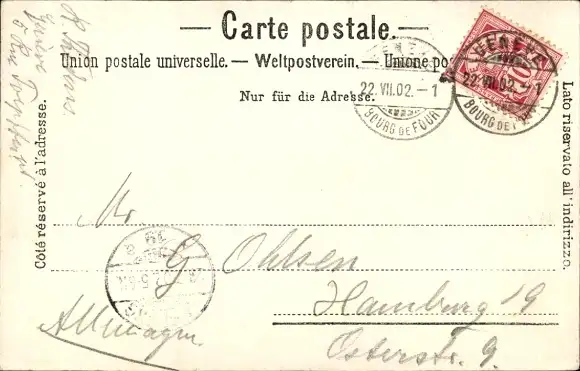 — Carte postale. —
Union postale universelle. — Weltpostverein. — Unione po
Nur für die Adresse.
Côté réservé à l'adresse.
Lato riservato all'indirizzo.
GENEVE
22.VII.02.–1
BOURG DE FOUR
GENEVE
22.VII.02.–1
BOURG DE FOUR
10
Mr.
G Ohlsen
Hamburg 19
Osterstr. 9.
Allemagne
Genève